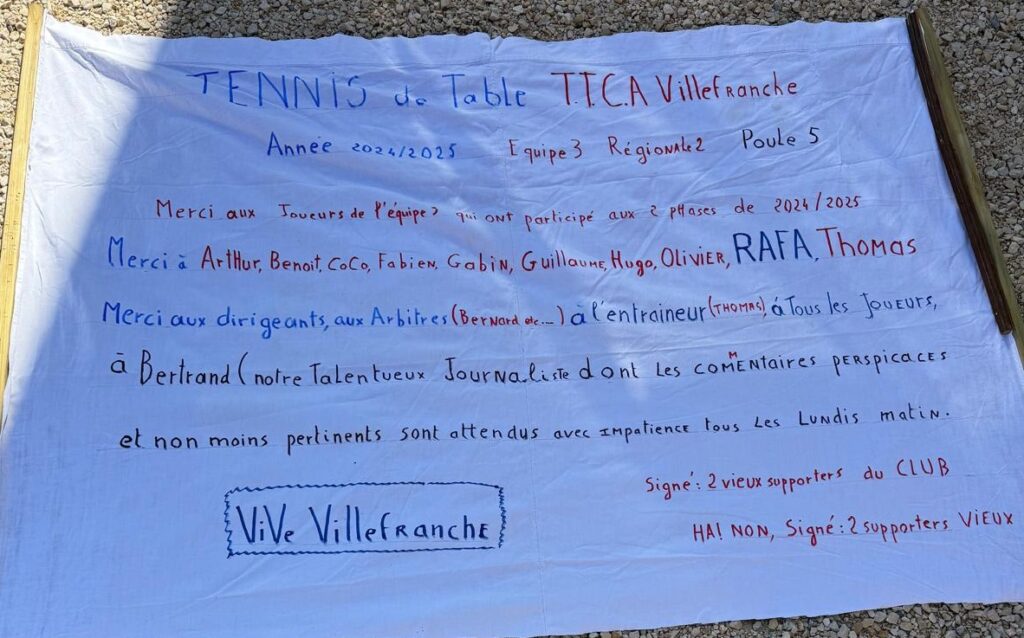 TENNIS de Table T.T.C.A Villefranche
Année 2024/2025 Equipe 3 Régionale 2 Poule 5
Merci aux Joueurs de l'équipe 3 qui ont participé aux 2 phases de 2024/2025
Merci à Arthur, Benoit, CoCo, Fabien, Gabin, Guillaume, Hugo, Olivier, RAFA, Thomas
Merci aux dirigeants, aux Arbitres (Bernard etc....) à l'entraineur (THOMAS), à Tous les Joueurs,
à Bertrand (notre Talentueux Journaliste dont les comMentaires perspicaces
et non moins pertinents sont attendus avec impatience tous les Lundis matin.
Signé: 2 vieux supporters du CLUB
ViVe Villefranche
HA! NON, Signé: 2 supporters VIEUX